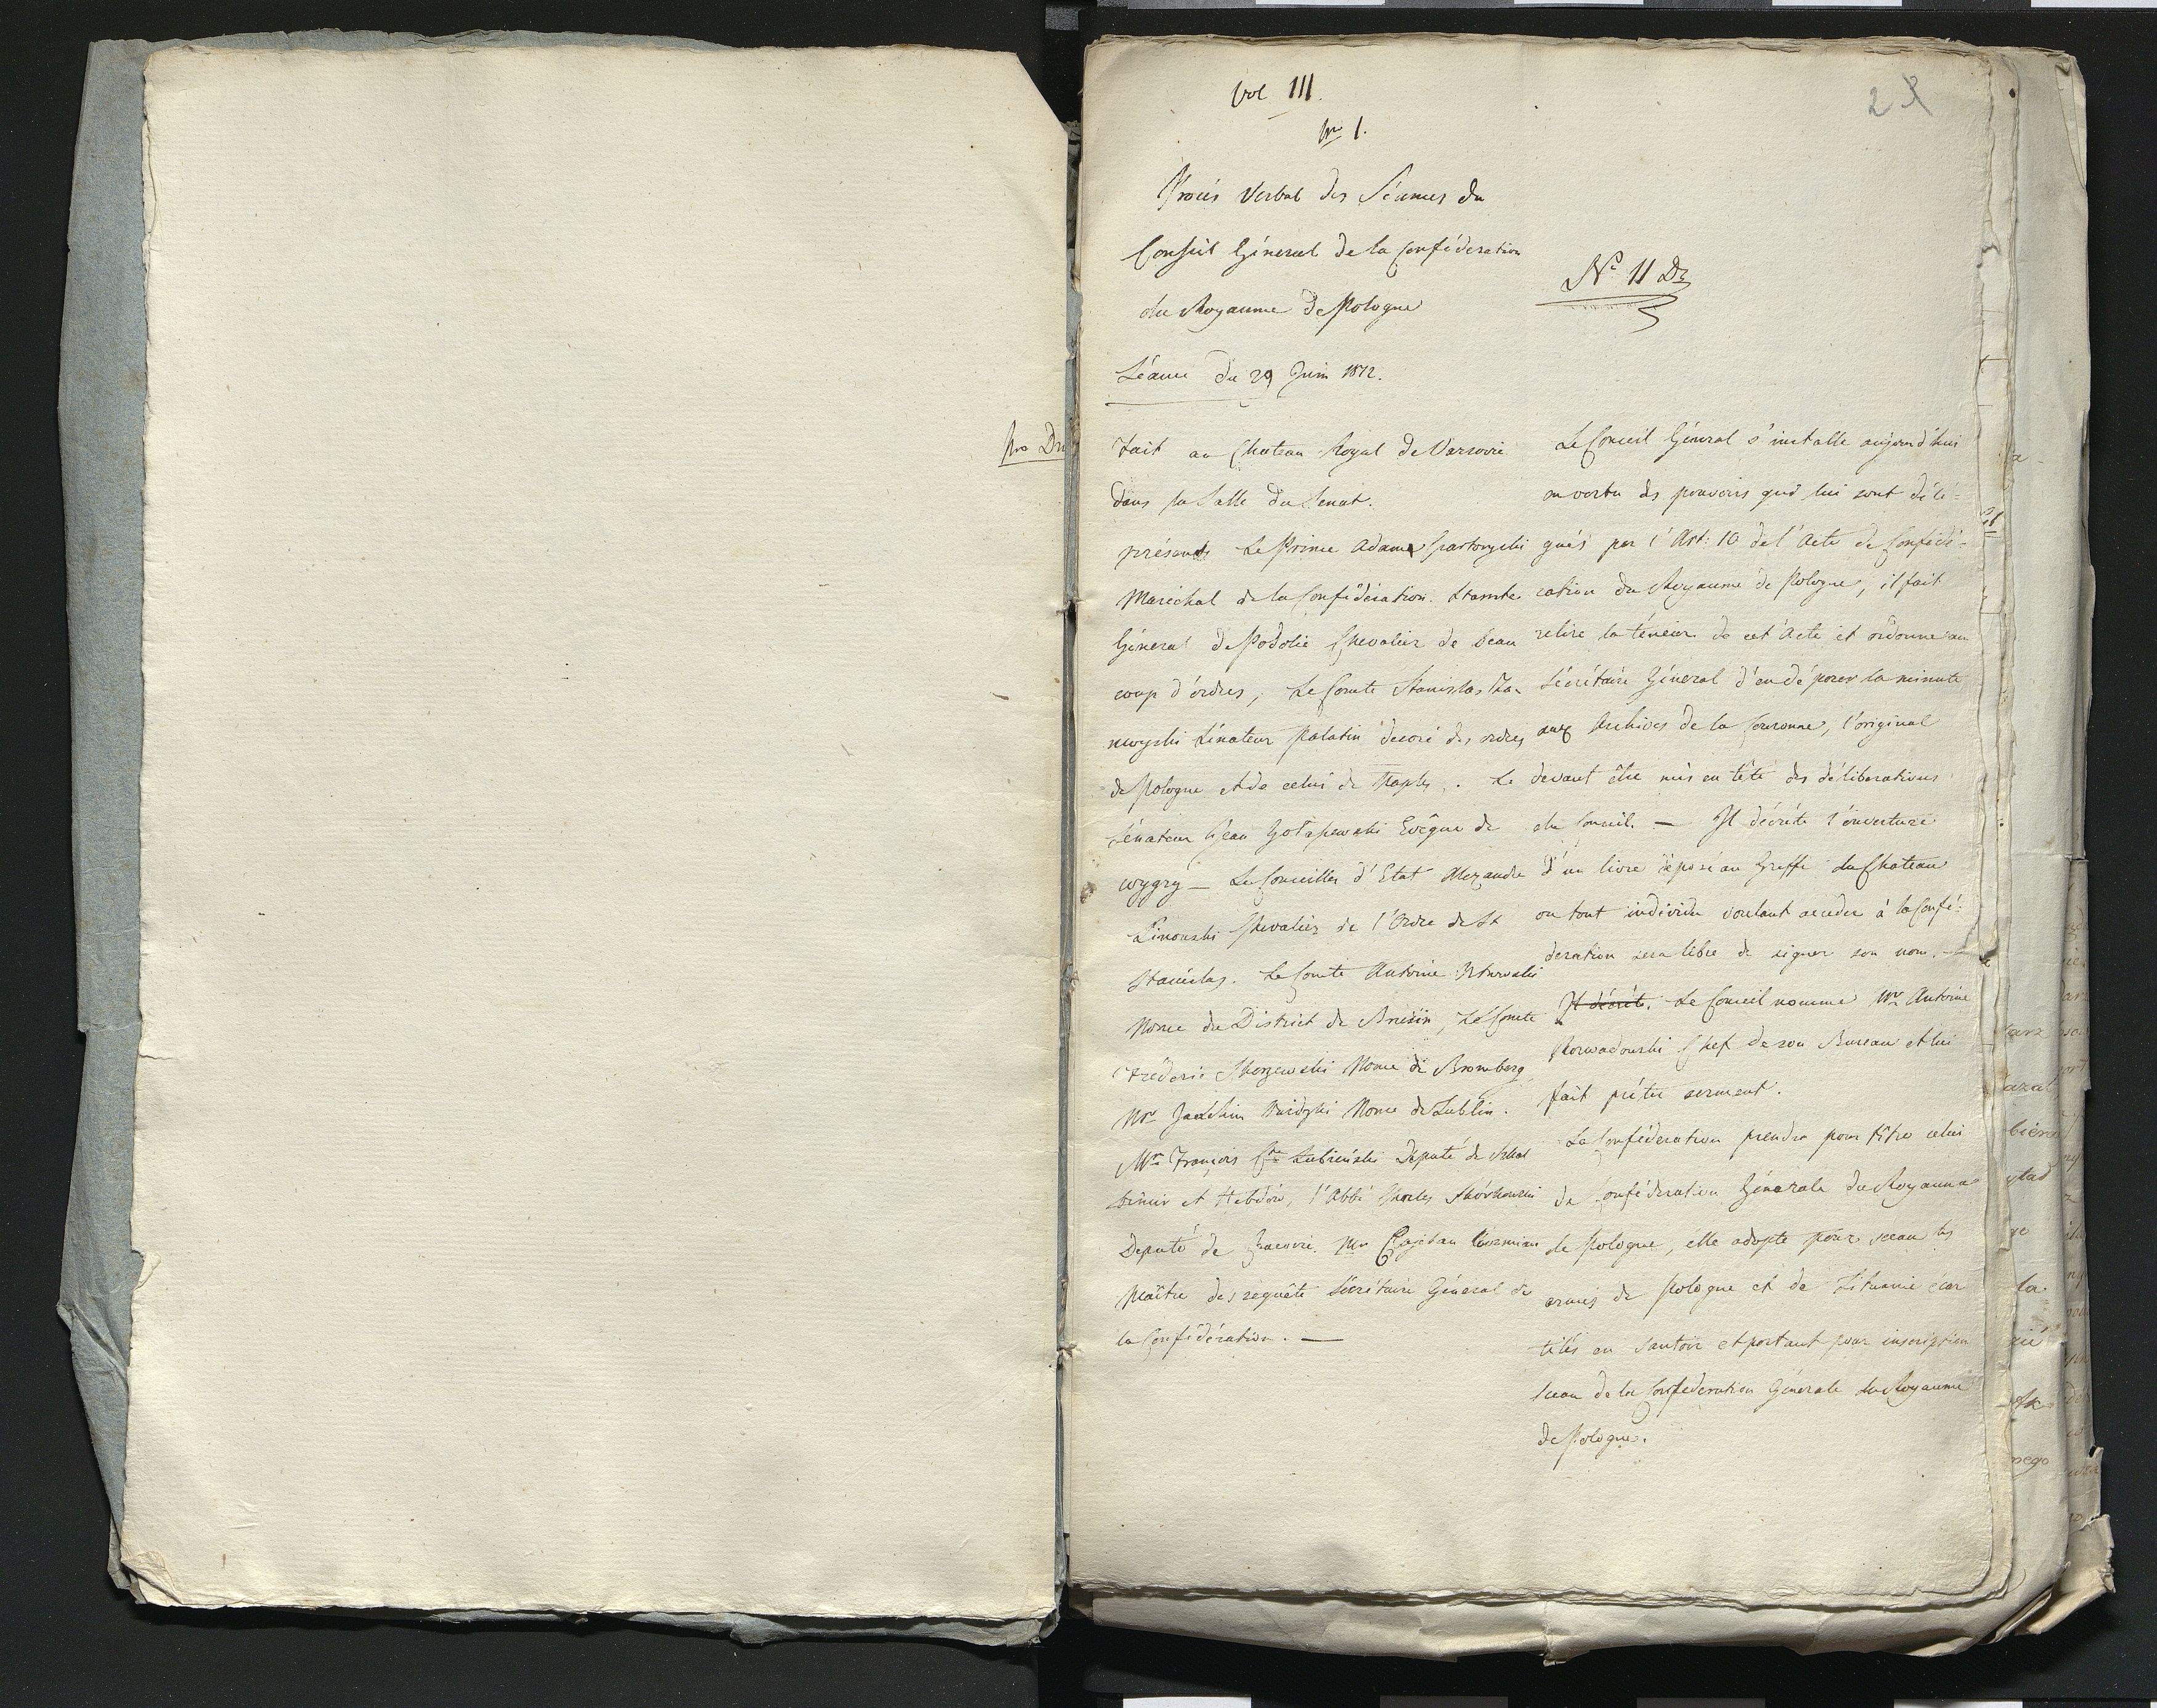 Vol III.
28
Nro 1.
Procès Verbal des Séances du
Conseil Géneral de la Conféderation
du Royaume de Pologne
Nº 11 Dz
Séance du 29 Juin 1812.
Nro Dz
Fait au Chateau Royal de Varsovie
dans la Salle du Senat.
présents Le Prince Adam Czartoryski
Maréchal de la Confédération. Staroste
Géneral de Podolie Chevalier de beau
coup d'ordres, Le Comte Stanislas Za-
moyski Sénateur Palatin décoré des ordres
de Pologne et de celui de Naples. Le
Sénateur Jean Gołaszewski Evêque de
wygry — Le Conseiller d'Etat Alexandre
Linowski Chevalier de l'Ordre de St
Stanislas. Le Comte Antoine Ostrowski
Nonce du District de Brezin, Le Comte
Fréderic Skorzewski Nonce de Bromberg,
Mr Joachim Owidzki Nonce de Lublin.
Mr François Cte Lubieński Député de
et Hebdów, l'Abbé Charles Skórkowski
Deputé de Cracovie. Mr Cajetan Koźmian
Maître des requête Sécrétaire Géneral de
la Conféderation. —
Le Conseil Géneral s'installe aujourd'hui
en vertu des pouvoirs qui lui sont délé-
gués par l'Art: 10 de l'Acte de Confédé-
ration du Royaume de Pologne, il fait
relire la téneur de cet Acte et ordonne au
Sécrétaire Géneral d'en déposer la minute
aux Archives de la Couronne, l'original
devant être mis en tête des déliberations
du Conseil. — Il décréte l'ouverture
d'un livre déposé au Greffe du Chateau
ou tout individu voulant acceder à la Confé-
deration sera libre de signer son nom. —
Il décréte. Le Conseil nomme Mr Antoine
Rozwadowski Chef de son Bureau et lui
fait prêter serment.
La Conféderation prendra pour titre celui
de Conféderation Génerale du Royaume
de Pologne, elle adopte pour sceau les
armes de Pologne et de Lituanie écar
telés en Sautoir et portant pour inscription
Sceau de la Conféderation Génerale du Royaume
de Pologne.